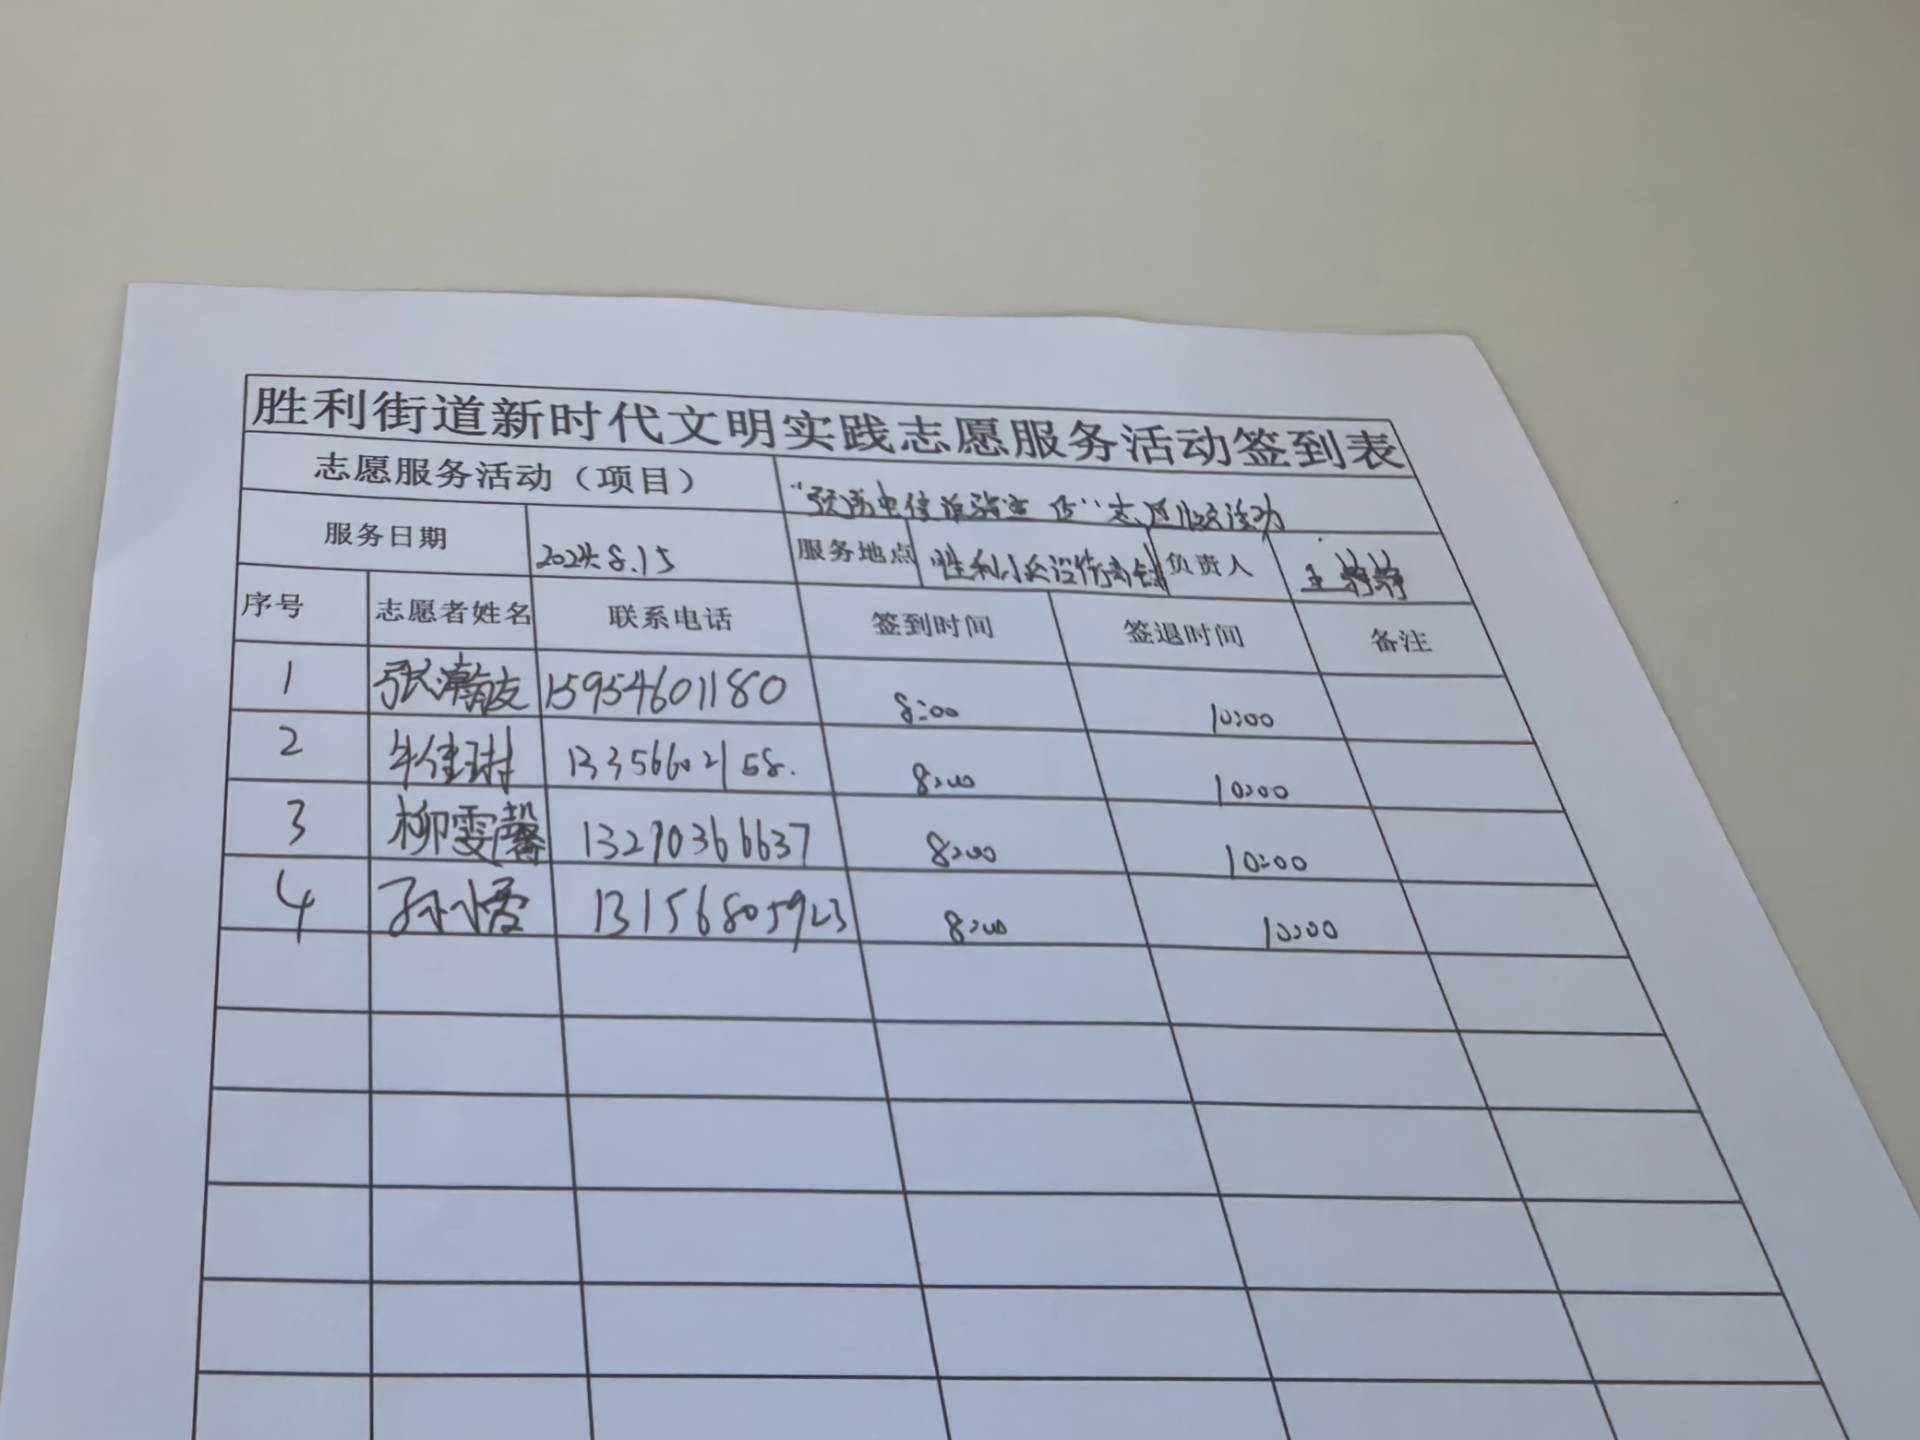 胜利街道新时代文明实践志愿服务活动签到表
志愿服务活动（项目） “预防电信诈骗宣传”志愿服务活动
服务日期 2024.8.15 服务地点 胜利小区沿街商铺 负责人 王静静
序号 志愿者姓名 联系电话 签到时间 签退时间 备注
1 张瀚友 15954601180 8:00 10:00
2 牛佳琳 13356602158. 8:00 10:00
3 柳雯馨 13290366637 8:00 10:00
4 孙小雯 13156805923 8:00 10:00